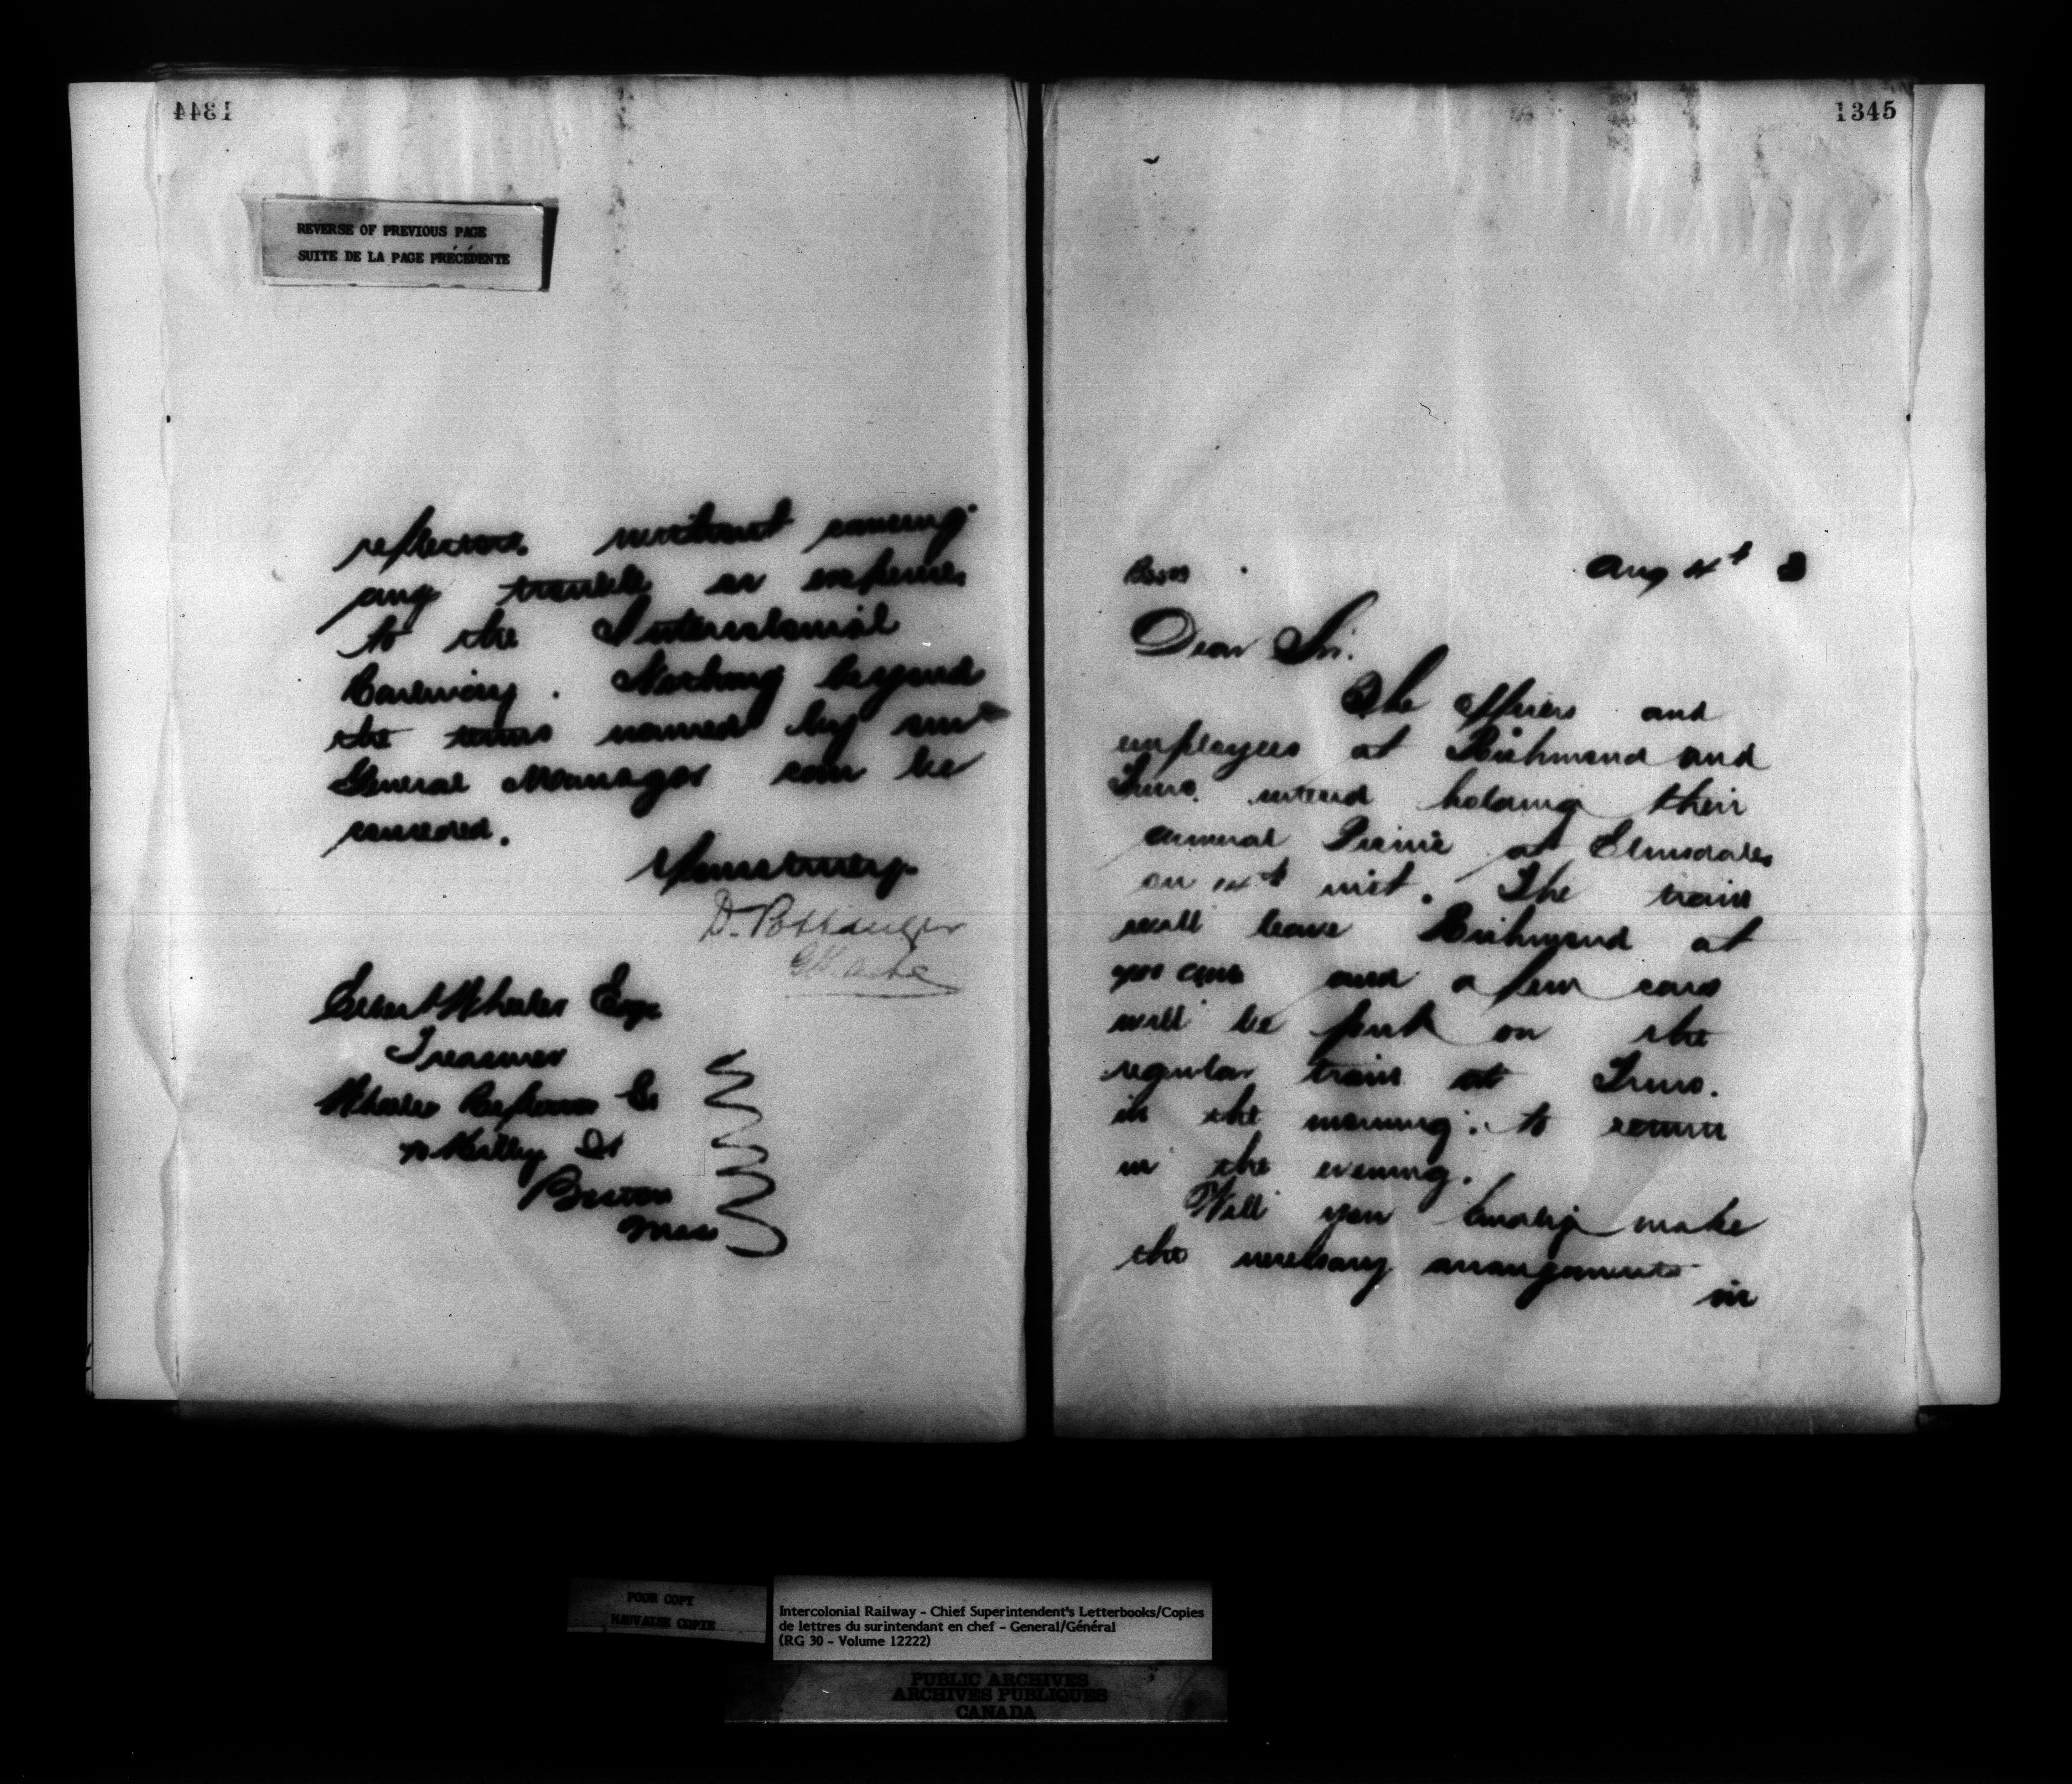 1344
REVERSE OF PREVIOUS PAGE
SUITE DE LA PAGE PRÉCÉDENTE
without causing
any trouble or expense
to the Intercolonial
Railway. Nothing beyond
the terms named by our
General Manager can be
conceded.
Yours truly
D. Pottinger
Wheeler Esqr
Treasurer
Wheeler Reflector Co
St
Boston
Mass
1345
Aug 4th 8
Dear Sir.
The Officers and
employees at Richmond and
Truro intend holding their
annual Picnic at Elmsdale
on inst. The train
will leave Richmond at
and a few cars
will be put on the
regular train at Truro.
in the morning: to return
in the evening.
Will you kindly make
the necessary arrangements
in
POOR COPY
MAUVAISE COPIE
Intercolonial Railway - Chief Superintendent's Letterbooks/Copies
de lettres du surintendant en chef - General/Général
(RG 30 - Volume 12222)
PUBLIC ARCHIVES
ARCHIVES PUBLIQUES
CANADA